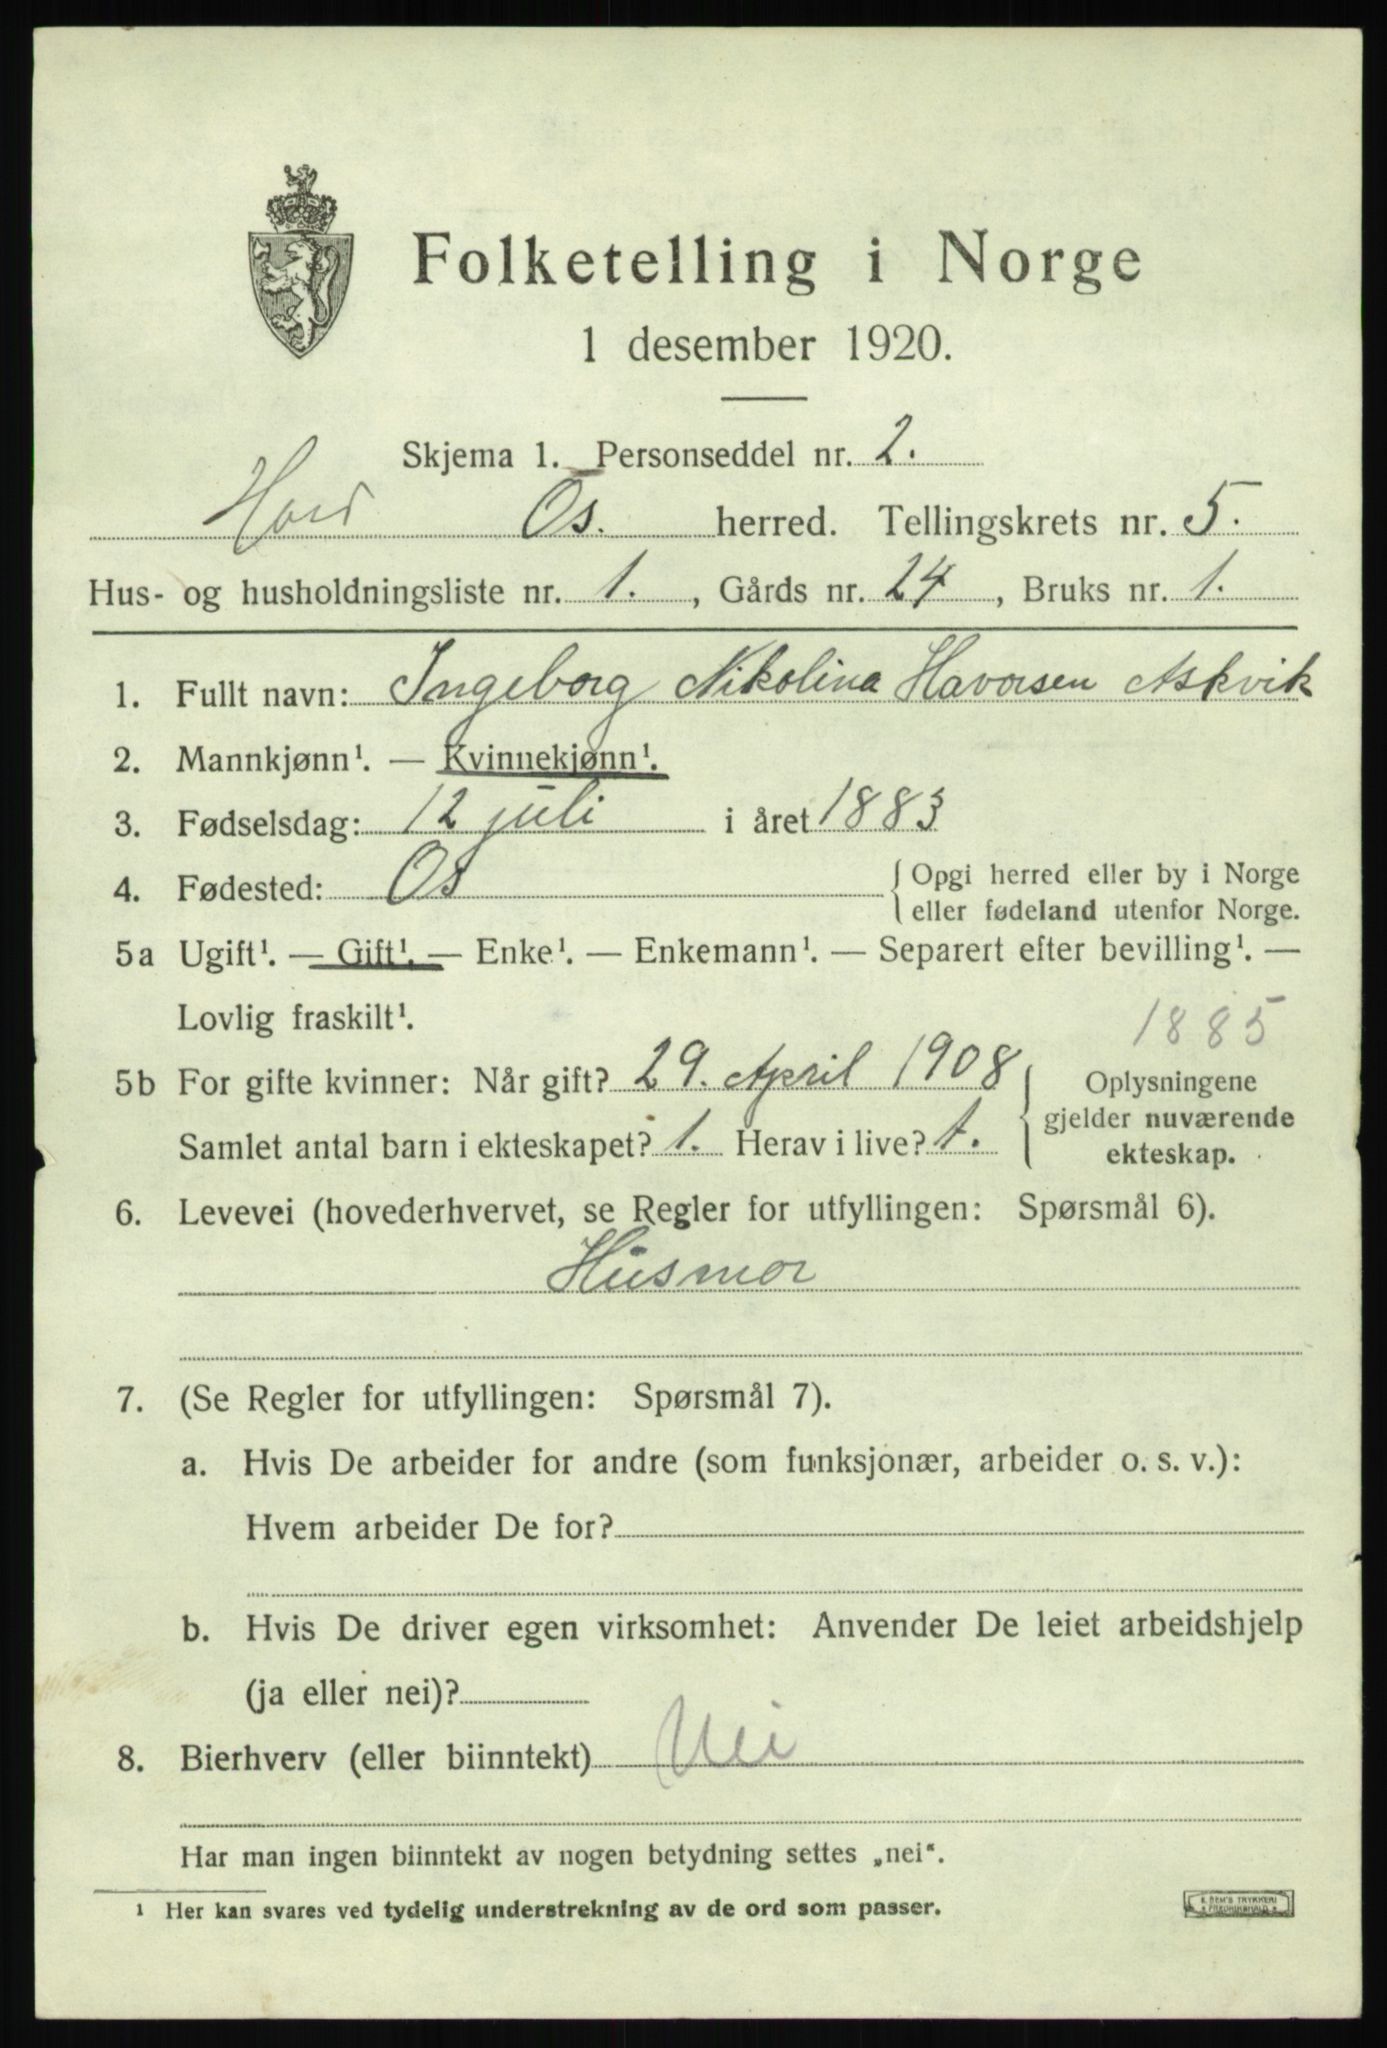 Folketelling i Norge
1 desember 1920.
Skjema 1. Personseddel nr. 2.
Hord Os. herred. Tellingskrets nr. 5.
Hus- og husholdningsliste nr. 1., Gårds nr. 24, Bruks nr. 1.
1. Fullt navn: Ingeborg Nikolina Havorsen Askvik
2. Mannkjønn¹. — Kvinnekjønn¹.
3. Fødselsdag: 12 juli i året 1883
4. Fødested: Os { Opgi herred eller by i Norge
eller fødeland utenfor Norge.
5a Ugift¹. — Gift¹. — Enke¹. — Enkemann¹. — Separert efter bevilling¹. —
Lovlig fraskilt¹.
1885
5b For gifte kvinner: Når gift? 29. April 1908 { Oplysningene
gjelder nuværende
Samlet antal barn i ekteskapet? 1. Herav i live? 1.
ekteskap.
6. Levevei (hovederhvervet, se Regler for utfyllingen: Spørsmål 6).
Husmor
7. (Se Regler for utfyllingen: Spørsmål 7).
a. Hvis De arbeider for andre (som funksjonær, arbeider o. s. v.):
Hvem arbeider De for?
b. Hvis De driver egen virksomhet: Anvender De leiet arbeidshjelp
(ja eller nei)?
8. Bierhverv (eller biinntekt) Nei
Har man ingen biinntekt av nogen betydning settes „nei“.
¹ Her kan svares ved tydelig understrekning av de ord som passer.
E. SEM'S TRYKKERI
FREDRIKSHALD